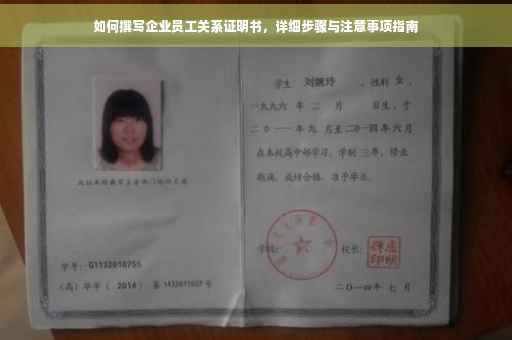 如何撰写企业员工关系证明书，详细步骤与注意事项指南
学生 刘婉玲 ，性别 女 ，
一九九六 年 二 月 日生，于
二0一一 年 九 月至 二0一四 年 六 月
在本校高中部学习，学制 三 年，修业
期满，成绩合格，准予毕业。
学校：
校长：
二〇一四年 七 月
学号：G1132010755
（高）毕字（ 2014 ）第 1432011027 号